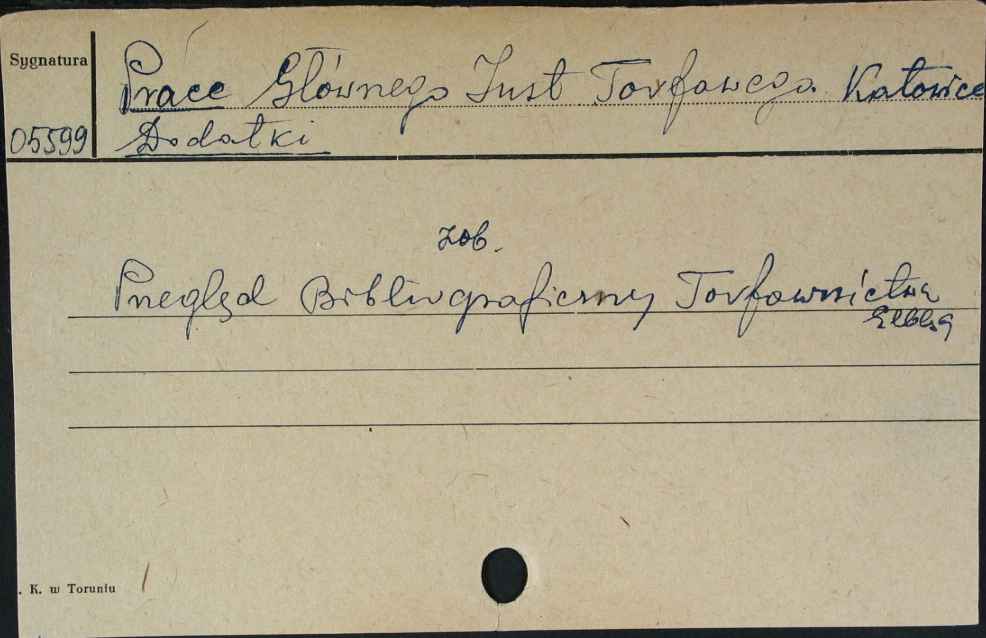 Sygnatura
Prace Głównego Inst Torfowego Katowice
05599 Dodatki
zob.
Przegląd Bibliograficzny Torfownictwa
Elbląg
. K. w Toruniu